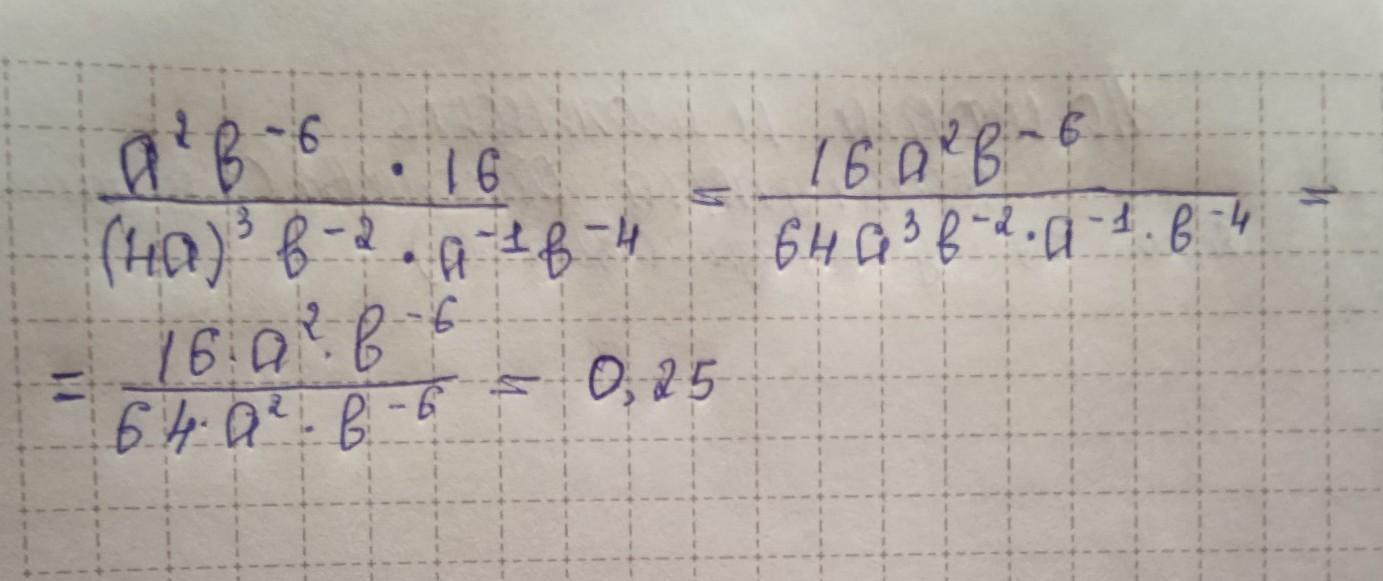 a² b⁻⁶ · 16 / (4a)³ b⁻² · a⁻¹ b⁻⁴ = 16 a² b⁻⁶ / 64 a³ b⁻² · a⁻¹ · b⁻⁴ =
= 16 · a² · b⁻⁶ / 64 · a² · b⁻⁶ = 0,25